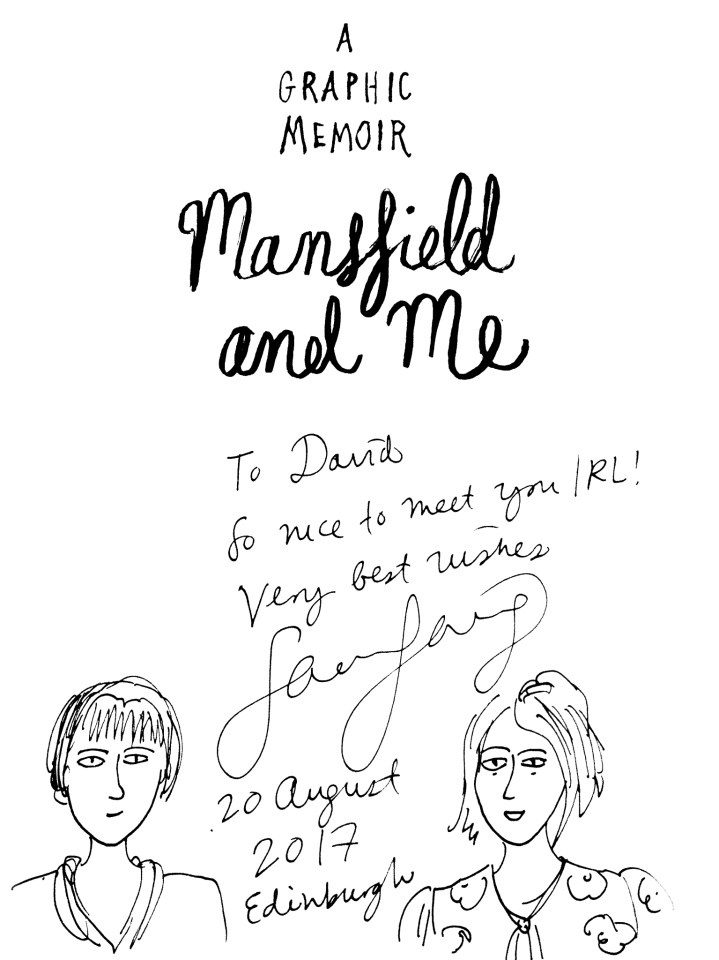 A
GRAPHIC
MEMOIR
Mansfield
and Me
To David
So nice to meet you IRL!
Very best wishes
Sarah Laing
20 August
2017
Edinburgh